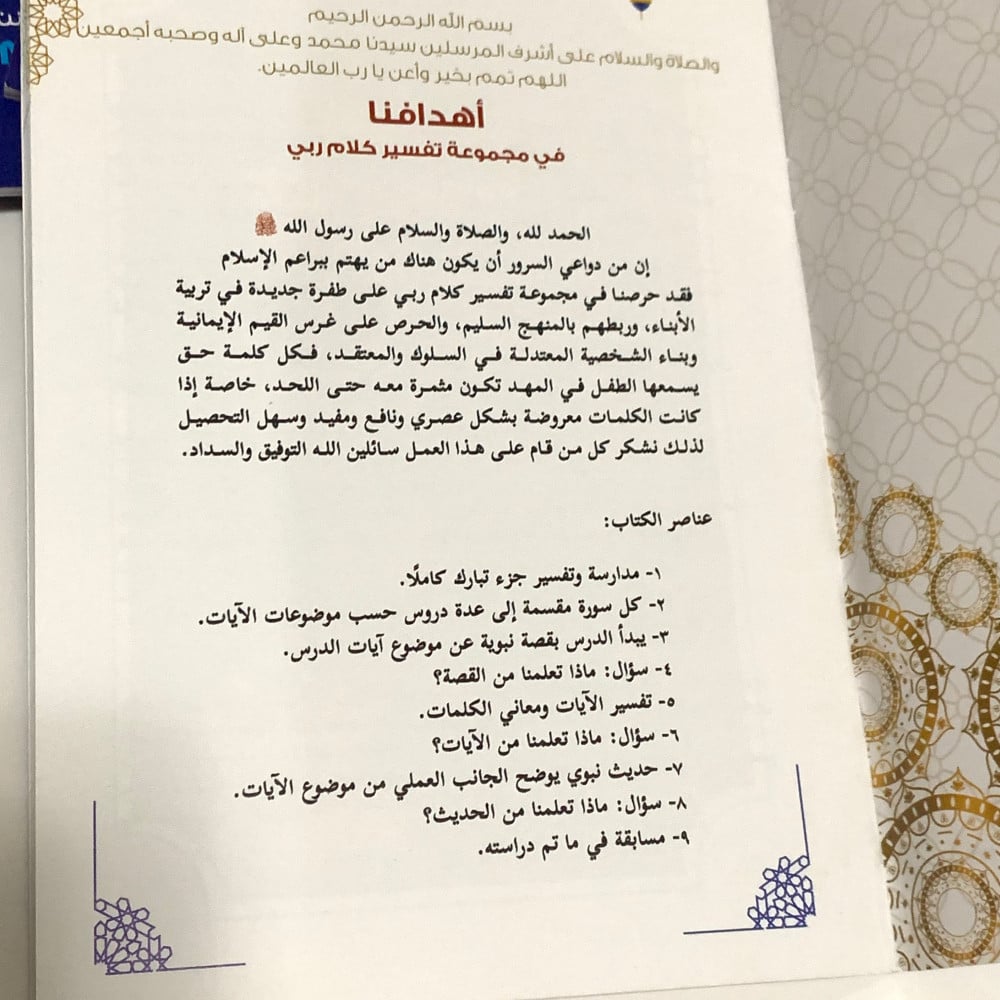 بسم الله الرحمن الرحيم
والصلاة والسلام على أشرف المرسلين سيدنا محمد وعلى آله وصحبه أجمعين
اللهم تمم بخير وأعن يا رب العالمين.
أهدافنا
في مجموعة تفسير كلام ربي
الحمد لله، والصلاة والسلام على رسول الله ﷺ
إن من دواعي السرور أن يكون هناك من يهتم ببراعم الإسلام
فقد حرصنا في مجموعة تفسير كلام ربي على طفرة جديدة في تربية
الأبناء، وربطهم بالمنهج السليم، والحرص على غرس القيم الإيمانية
وبناء الشخصية المعتدلة في السلوك والمعتقد، فكل كلمة حق
يسمعها الطفل في المهد تكون مثمرة معه حتى اللحد، خاصة إذا
كانت الكلمات معروضة بشكل عصري ونافع ومفيد وسهل التحصيل
لذلك نشكر كل من قام على هذا العمل سائلين الله التوفيق والسداد.
عناصر الكتاب:
١- مدارسة وتفسير جزء تبارك كاملًا.
٢- كل سورة مقسمة إلى عدة دروس حسب موضوعات الآيات.
٣- يبدأ الدرس بقصة نبوية عن موضوع آيات الدرس.
٤- سؤال: ماذا تعلمنا من القصة؟
٥- تفسير الآيات ومعاني الكلمات.
٦- سؤال: ماذا تعلمنا من الآيات؟
٧- حديث نبوي يوضح الجانب العملي من موضوع الآيات.
٨- سؤال: ماذا تعلمنا من الحديث؟
٩- مسابقة في ما تم دراسته.